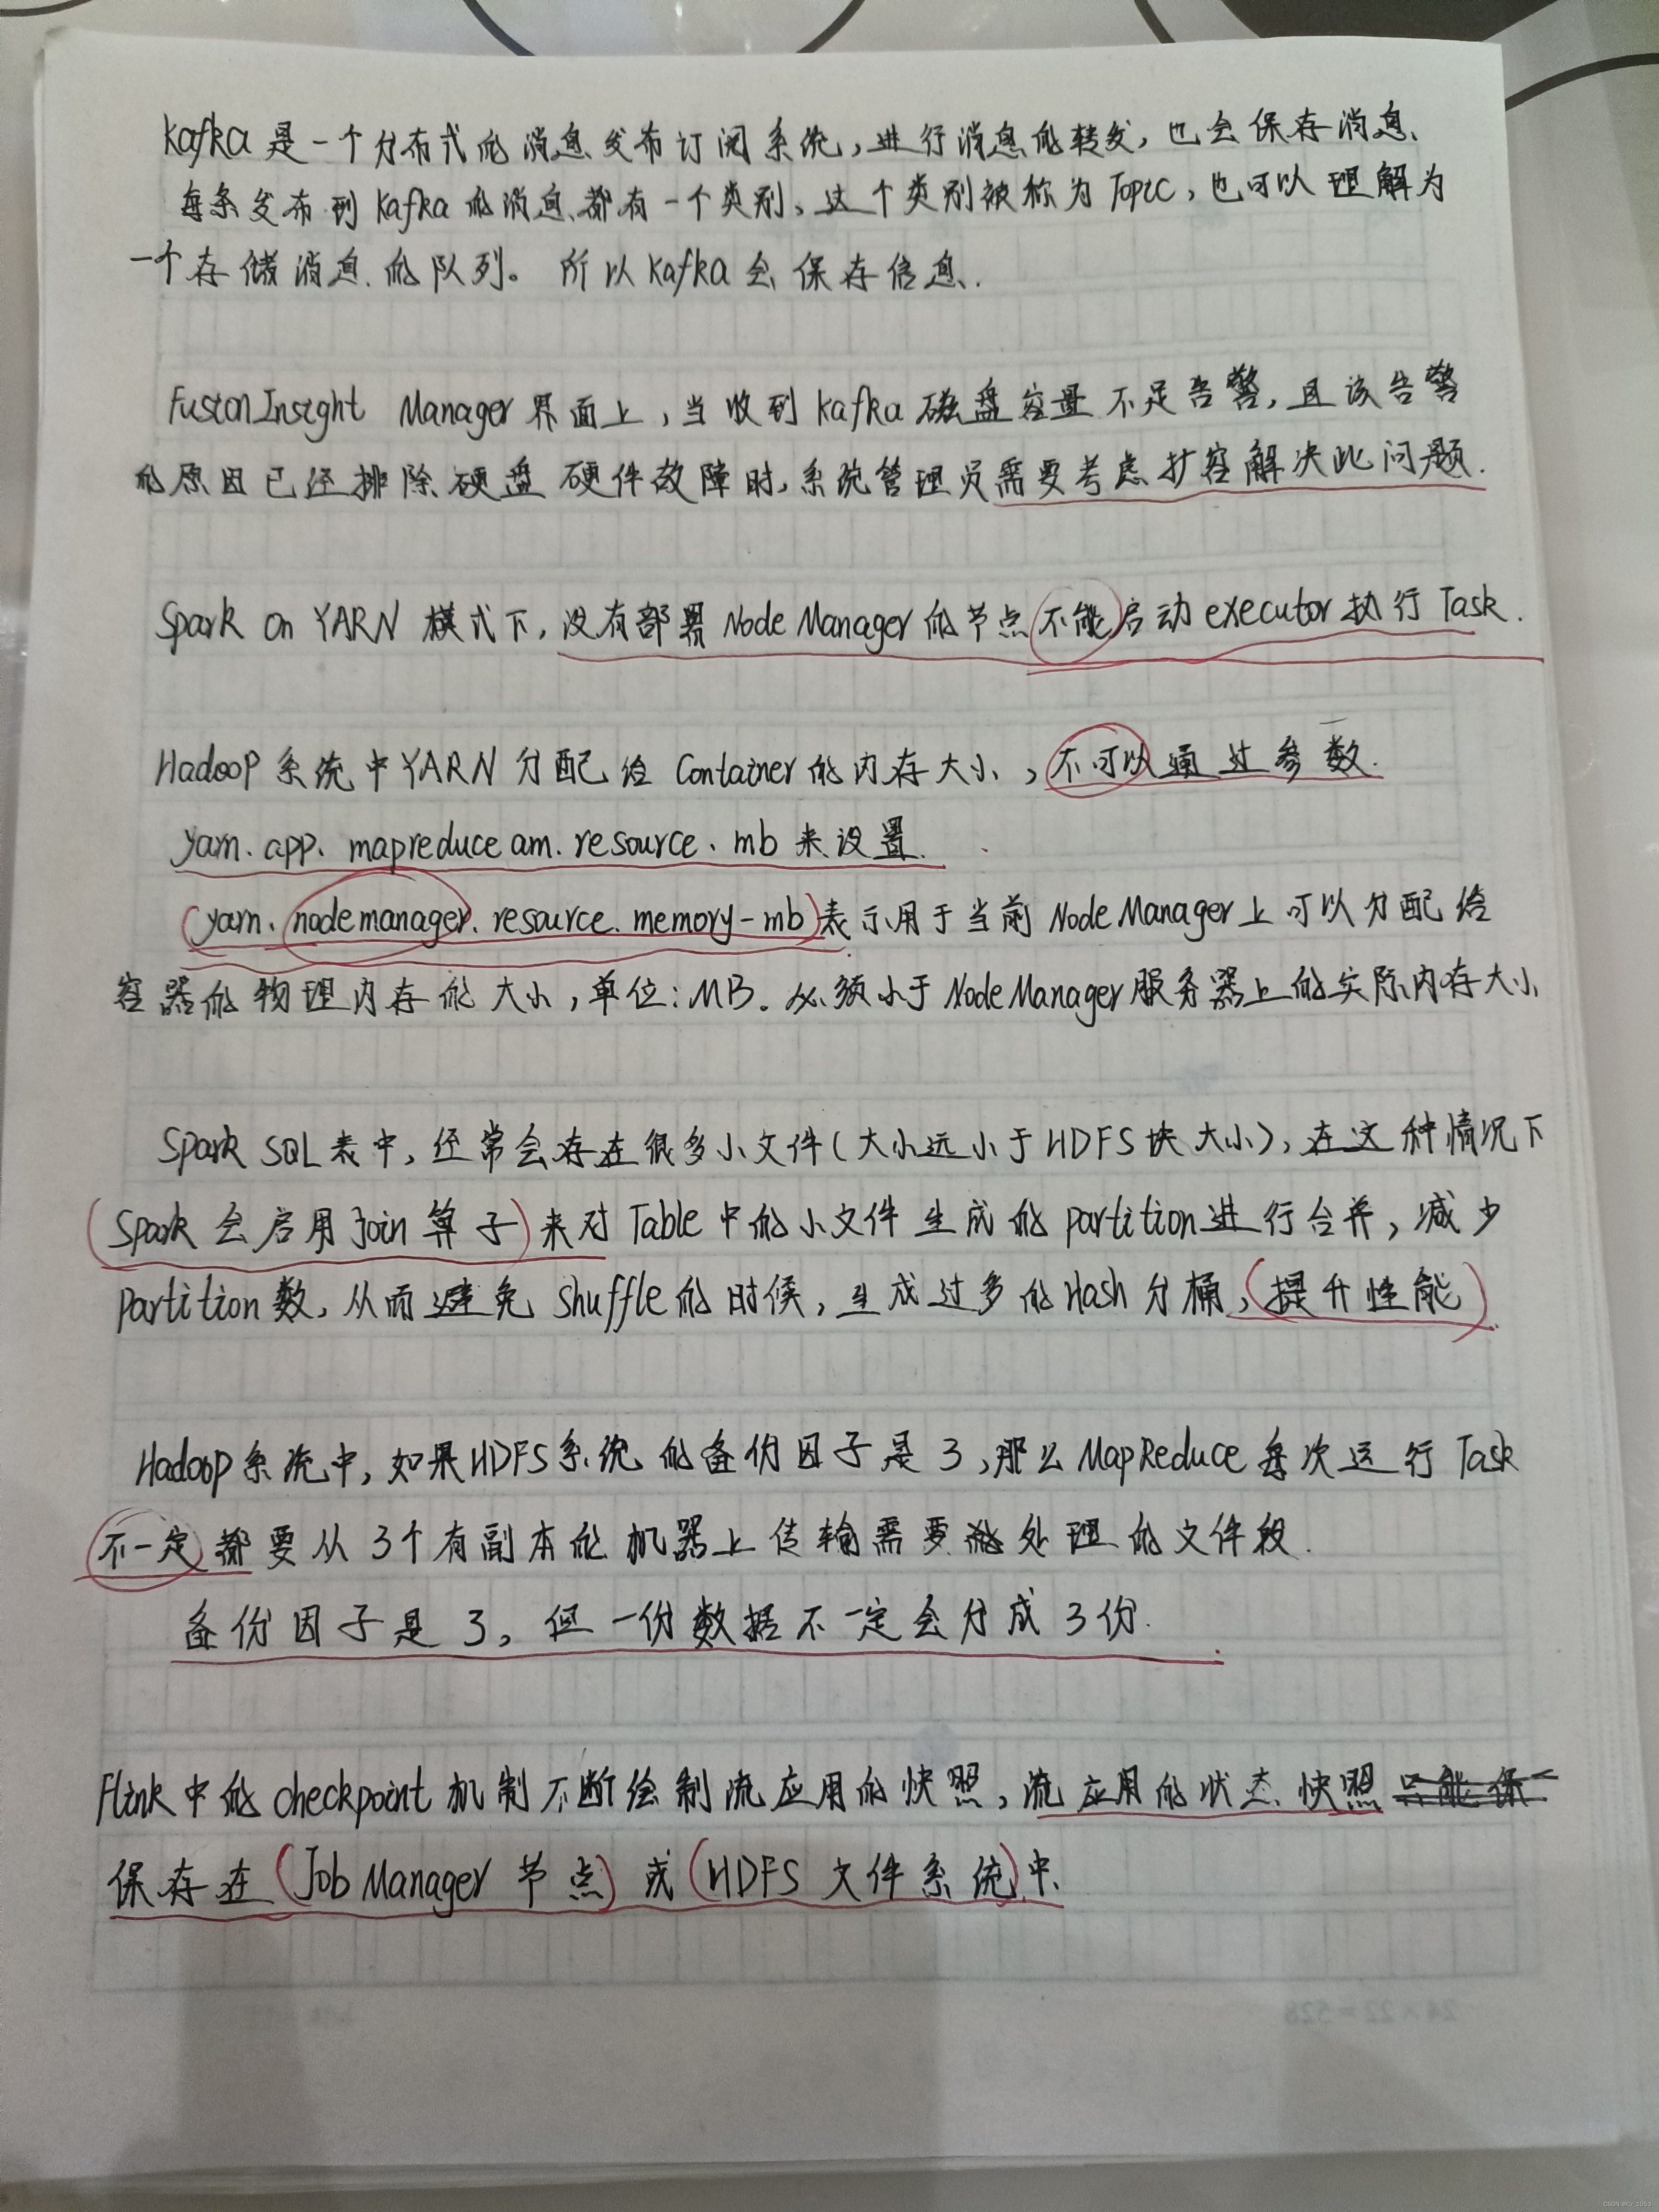 Kafka是一个分布式的消息发布订阅系统,进行消息的转发,也会保存消息、
每条发布到Kafka的消息都有一个类别、这个类别被称为Topic,也可以理解为
一个存储消息的队列。所以Kafka会保存信息.
FusionInsight Manager界面上,当收到kafka磁盘容量不足告警,且该告警
的原因已经排除硬盘硬件故障时,系统管理员需要考虑扩容解决此问题.
Spark on YARN模式下,没有部署Node Manager的节点不能启动executor执行Task.
Hadoop系统中YARN分配给Container的内存大小,不可以通过参数.
yarn.app.mapreduce am.resource.mb来设置.
(yarn.nodemanager.resource.memory-mb)表示用于当前NodeManager上可以分配给
容器的物理内存的大小,单位:MB。必须小于NodeManager服务器上的实际内存大小
Spark SQL表中,经常会存在很多小文件(大小远小于HDFS块大小),在这种情况下
(Spark会启用Join算子)来对Table中的小文件生成的partition进行合并,减少
partition数,从而避免shuffle的时候,生成过多的Hash分桶,(提升性能)
Hadoop系统中,如果HDFS系统的备份因子是3,那么MapReduce每次运行Task
不一定都要从3个有副本的机器上传输需要处理的文件段.
备份因子是3,但一份数据不一定会分成3份.
Flink中的checkpoint机制不断绘制流应用的快照,流应用的状态快照
保存在(Job Manager节点)或(HDFS文件系统)中.
24×22=528